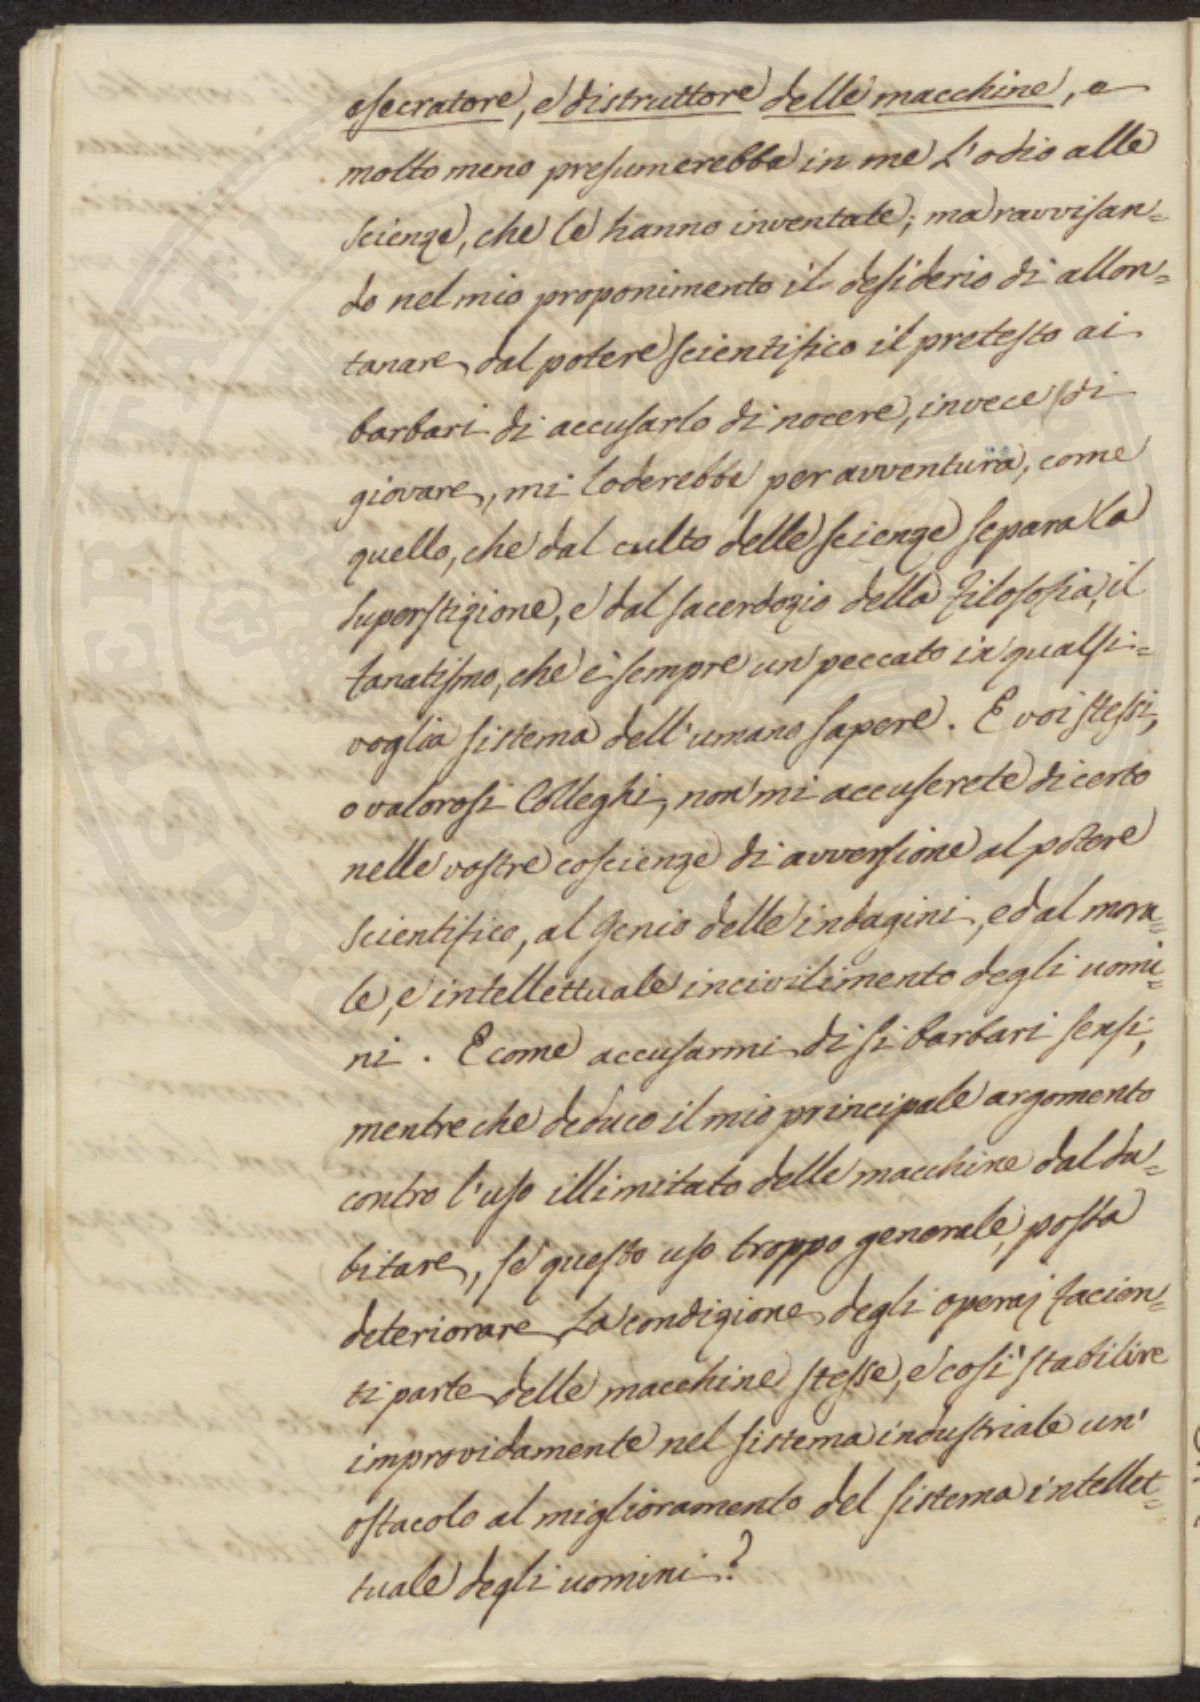 esecratore, e distruttore delle macchine, e
molto meno presumerebbe in me l'odio alle
scienze, che le hanno inventate; ma ravvisan=
do nel mio proponimento il desiderio di allon=
tanare dal potere scientifico il pretesto ai
barbari di accusarlo di nocere, invece di
giovare, mi loderebbe per avventura, come
quello, che dal culto delle scienze separa la
superstizione, e dal sacerdozio della filosofia, il
fanatismo, che è sempre un peccato in qualsi=
voglia sistema dell'umano sapere. E voi stessi,
o valorosi Colleghi, non mi accuserete di certo
nelle vostre coscienze di avversione al potere
scientifico, al genio delle indagini, ed al mora=
le, e intellettuale incivilimento degli uomi=
ni. E come accusarmi di si barbari sensi,
mentre che deduco il mio principale argomento
contro l'uso illimitato delle macchine dal du=
bitare, se questo uso troppo generale, possa
deteriorare la condizione degli operaj facien=
ti parte delle macchine stesse, e così stabilire
improvidamente nel sistema industriale un'
ostacolo al miglioramento del sistema intellet=
tuale degli uomini?
PROSPERITATI PUBLICAE